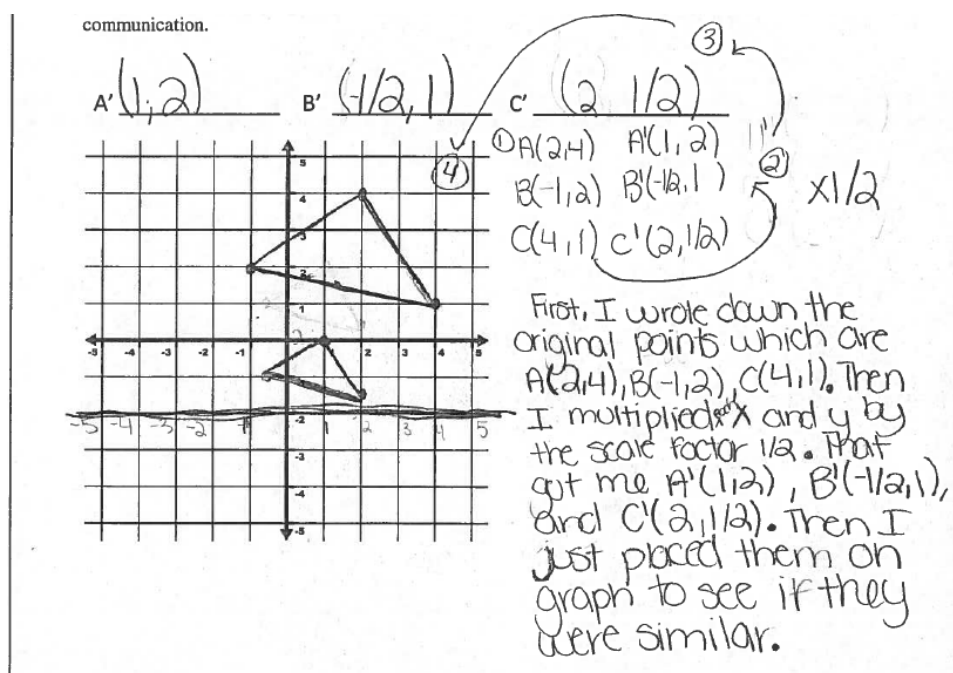 communication.
③
A' (1,2) B' (-1/2,1) C' (2 1/2)
① A(2,4) A'(1,2)
④ ②
B(-1,2) B'(-1/2,1) X1/2
C(4,1) C'(2,1/2)
5
4
3
2
1
-5 -4 -3 -2 -1 2 3 4 5
-5 -4 -3 -2 -1 -2 1 2 3 4 5
-3
-4
-5
First, I wrote down the
original points which are
A(2,4), B(-1,2), C(4,1). Then
I multiplied x and y by
the scale factor 1/2. That
got me A'(1,2), B'(-1/2,1),
and C'(2,1/2). Then I
just placed them on
graph to see if they
were similar.